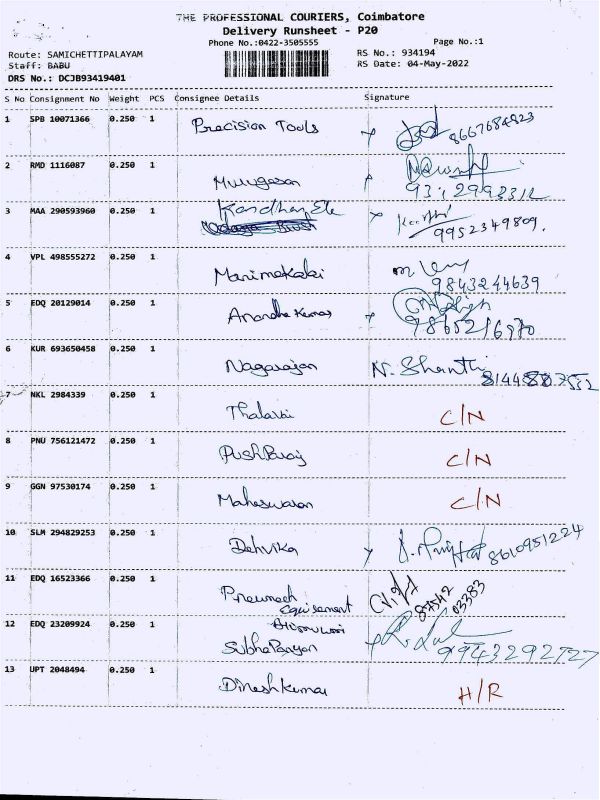 THE PROFESSIONAL COURIERS, Coimbatore
Delivery Runsheet - P20
Phone No.:0422-3505555
Page No.:1
Route: SAMICHETTIPALAYAM
RS No.: 934194
Staff: BABU
RS Date: 04-May-2022
DRS No.: DCJB93419401
S No Consignment No Weight PCS Consignee Details Signature
1 SPB 10071366 0.250 1 Precision Tools 8667684823
2 RMD 1116087 0.250 1 Murugasan
3 MAA 290593960 0.250 1 9952349809.
4 VPL 498555272 0.250 1 Manimekalai 9843244639
5 EDQ 20129014 0.250 1 Anandha Kumar 9865216970
6 KUR 693650458 0.250 1 Nagarajan N. Shanthi
7 NKL 2984339 0.250 1 Thalavai C/N
8 PNU 756121472 0.250 1 PushParaj C/N
9 GGN 97530174 0.250 1 Maheswaran C/N
10 SLM 294829253 0.250 1 Dehvika 8610951224
11 EDQ 16523366 0.250 1 87542
03383
12 EDQ 23209924 0.250 1 9943292727
13 UPT 2048494 0.250 1 Dinesh Kumar H/R